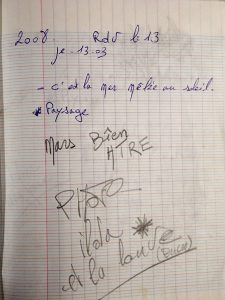 2008. RdV le 13
je 13.03
- c'est la mer mêlée au soleil.
* Paysage
Mars Bien
ATRE
PHOTO
ilda
et la lou